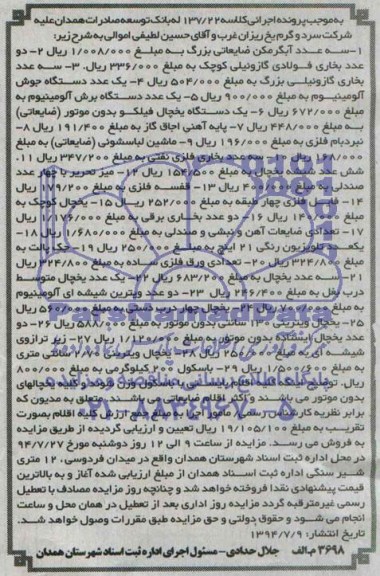 به موجب پرونده اجرائی کلاسه ۱۳۷/۲۲ له بانک توسعه صادرات همدان علیه
شرکت سرد و گرم یخ ریزان غرب و آقای حسین لطیفی اموالی به شرح زیر:
۱-سه عدد آبگرمکن ضایعاتی بزرگ به مبلغ ۱/۰۰۸/۰۰۰ ریال ۲-دو
عدد بخاری فولادی گازوئیلی کوچک به مبلغ ۳۳۶/۰۰۰ ریال. ۳- سه عدد
بخاری گازوئیلی بزرگ به مبلغ ۵۰۴/۰۰۰ ریال ۴- یک عدد دستگاه جوش
آلومینیوم به مبلغ ۹۰۰/۰۰۰ ریال ۵- یک عدد دستگاه برش آلومینیوم به
مبلغ ۶۷۲/۰۰۰ ریال ۶- یک دستگاه یخچال فیلکو بدون موتور (ضایعاتی)
به مبلغ ۴۴۸/۰۰۰ ریال ۷- پایه آهنی اجاق گاز به مبلغ ۱۹۱/۴۰۰ ریال ۸-
نبردبام فلزی به مبلغ ۱۹۶/۰۰۰ ریال ۹- ماشین لباسشوئی (ضایعاتی) به مبلغ
ریال ۱۰- سه عدد بخاری فلزی نفتی به مبلغ ۳۴۷/۲۰۰ ریال ۱۱-
شش عدد شیشه یخچال به مبلغ ریال ۱۲- میز تحریر با چهار عدد
صندلی به مبلغ ریال ۱۳- قفسه فلزی به مبلغ ۱۷۹/۲۰۰ ریال
۱۴- فلزی چهار طبقه به مبلغ ۲۵۲/۰۰۰ ریال ۱۵- یخچال کوچک به
مبلغ ریال ۱۶- دو عدد بخاری برقی به مبلغ ریال
۱۷- تعدادی ضایعات آهن و نبشی و صندلی به مبلغ ۱/۶۸۰/۰۰۰ ریال ۱۸-
یک عدد تلویزیون رنگی ۲۱ اینچ به مبلغ ریال ۱۹- جک پالت به
مبلغ ۳۲۴/۸۰۰ ریال ۲۰- تعدادی ورق فلزی ساده به مبلغ ۳۲۴/۸۰۰ ریال
۲۱- سه عدد یخچال به مبلغ ۶۸۳/۲۰۰ ریال ۲۲- یک عدد یخچال متوسط
درب بغل به مبلغ ۲۴۶/۴۰۰ ریال ۲۳- دو عدد ویترین شیشه ای آلومینیوم
به مبلغ ریال ۲۴- یخچال چهار درب دستی به مبلغ ۵۶۰/۰۰۰ ریال
۲۵- یخچال ویترینی ۱۳۰ سانتی بدون موتور به مبلغ ۵۸۸/۰۰۰ ریال ۲۶- دو
عدد یخچال ایستاده بدون موتور به مبلغ ریال ۲۷- زیر ترازوی
شیشه ای به مبلغ ریال ۲۸- یخچال ویترینی ۱۷۰ سانتی متری
به مبلغ ریال ۲۹- باسکول ۲۰۰ کیلوگرمی به مبلغ ۸۰۰/۰۰۰
ریال. یخچالهای
بدون موتور می باشند و اکثر اقلام ضایعاتی می باشند. متعلق به مدیون که
برابر نظریه کارشناس رسمی مأمور اجرا به مبلغ جمع ارزش کلیه اقلام بصورت
تقریب به مبلغ ۱۹/۱۰۵/۱۰۰ ریال تعیین و ارزیابی گردیده از طریق مزایده
به فروش می رسد. مزایده از ساعت ۹ الی ۱۲ روز دوشنبه مورخ ۹۴/۷/۲۷
در محل اداره ثبت اسناد شهرستان همدان واقع در میدان فردوسی، ۱۲ متری
شیر سنگی اداره ثبت اسناد همدان از مبلغ ارزیابی شده آغاز و به بالاترین
قیمت پیشنهادی نقدا فروخته خواهد شد و چنانچه روز مزایده مصادف با تعطیل
رسمی غیرمترقبه گردد مزایده روز اداری بعد از تعطیل در همان محل و ساعت
انجام می شود و حقوق دولتی و حق مزایده طبق مقررات وصول خواهد شد.
تاریخ انتشار: ۱۳۹۴/۷/۹
۳۶۹۸ م.الف جلال حدادی - مسئول اجرای اداره ثبت اسناد شهرستان همدان